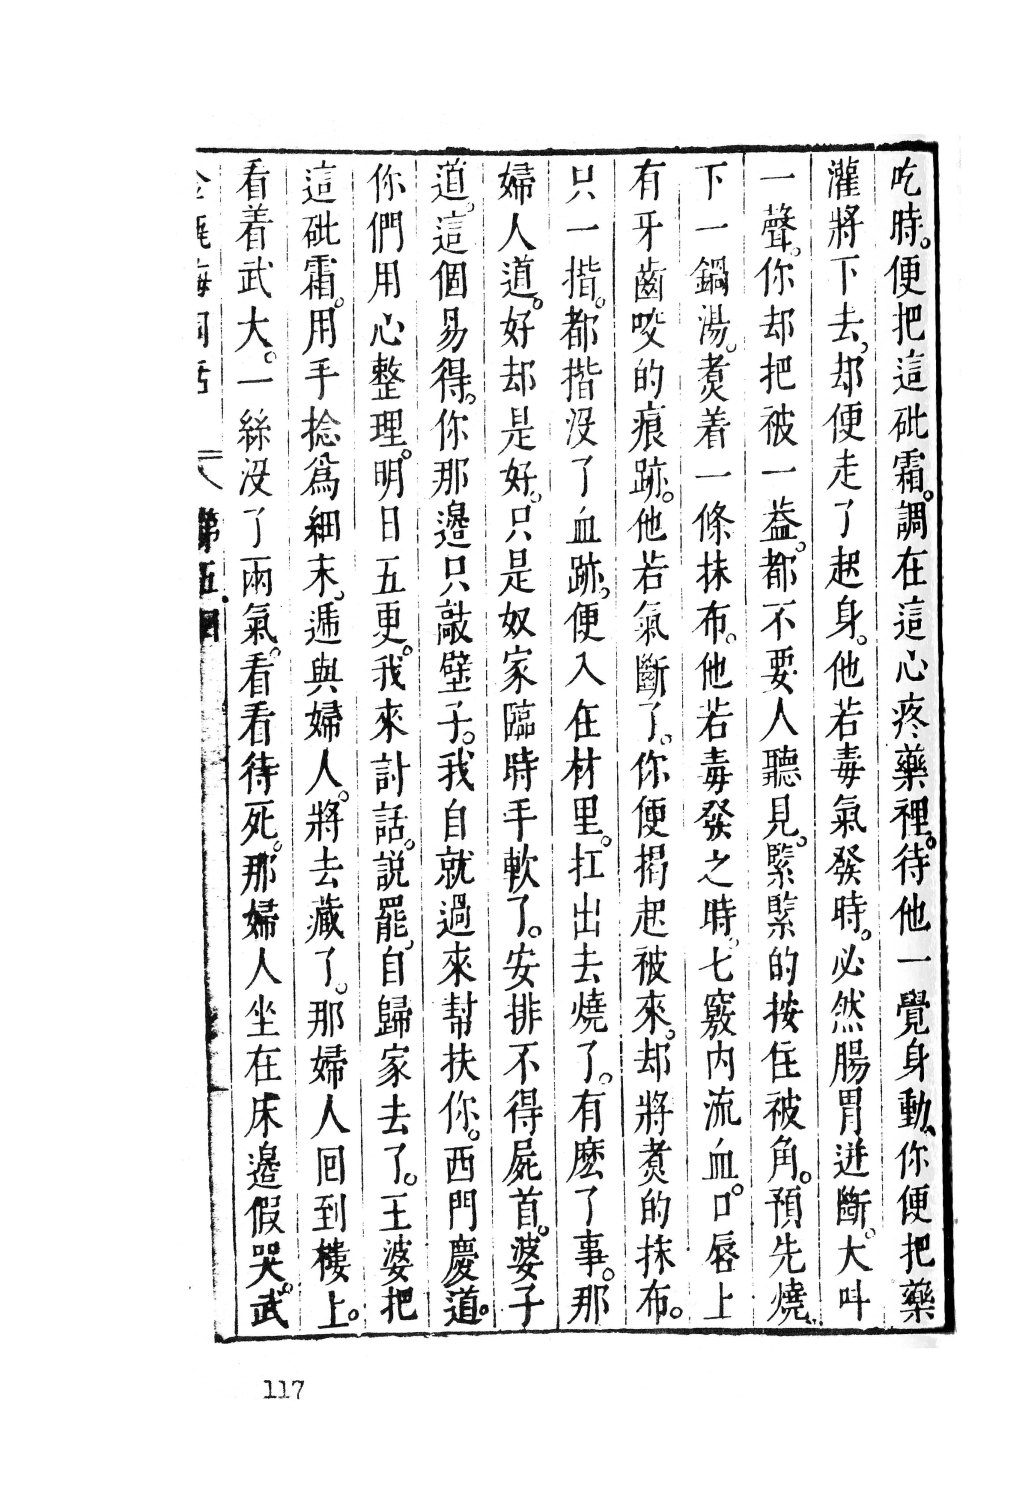 吃時。便把這砒霜。調在這心疼藥裡。待他一覺身動、你便把藥
灌將下去、却便走了起身。他若毒氣發時。必然腸胃迸斷。大叫
一聲。你却把被一葢。都不要人聽見。緊緊的按住被角。預先燒
下一鍋湯。煑着一條抹布。他若毒發之時、七竅内流血。口唇上
有牙齒咬的痕跡。他若氣斷了。你便揭起被來、却將煑的抹布。
只一揩。都揩没了血跡、便入在材里。扛出去燒了。有麽了事。那
婦人道。好却是好。只是奴家臨時手軟了。安排不得屍首。婆子
道。這個易得。你那邊只敲壁子。我自就過來幫扶你。西門慶道。
你們用心整理。明日五更。我來討話。説罷、自歸家去了。王婆把
這砒霜。用手捻爲細末、遞與婦人。將去藏了。那婦人回到樓上。
看着武大。一絲没了兩氣。看看待死。那婦人坐在床邊假哭。武
第五回
117